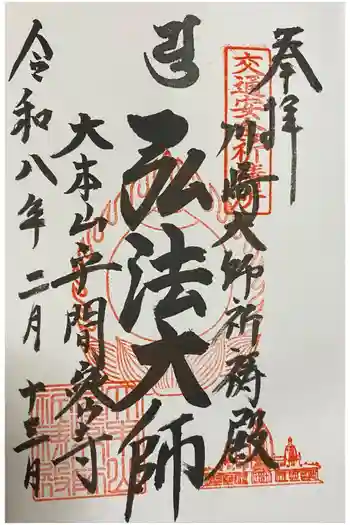 奉拝
交通安全祈祷所
川崎大師祈祷殿
弘法大師
大本山平間寺
令和八年二月十三日